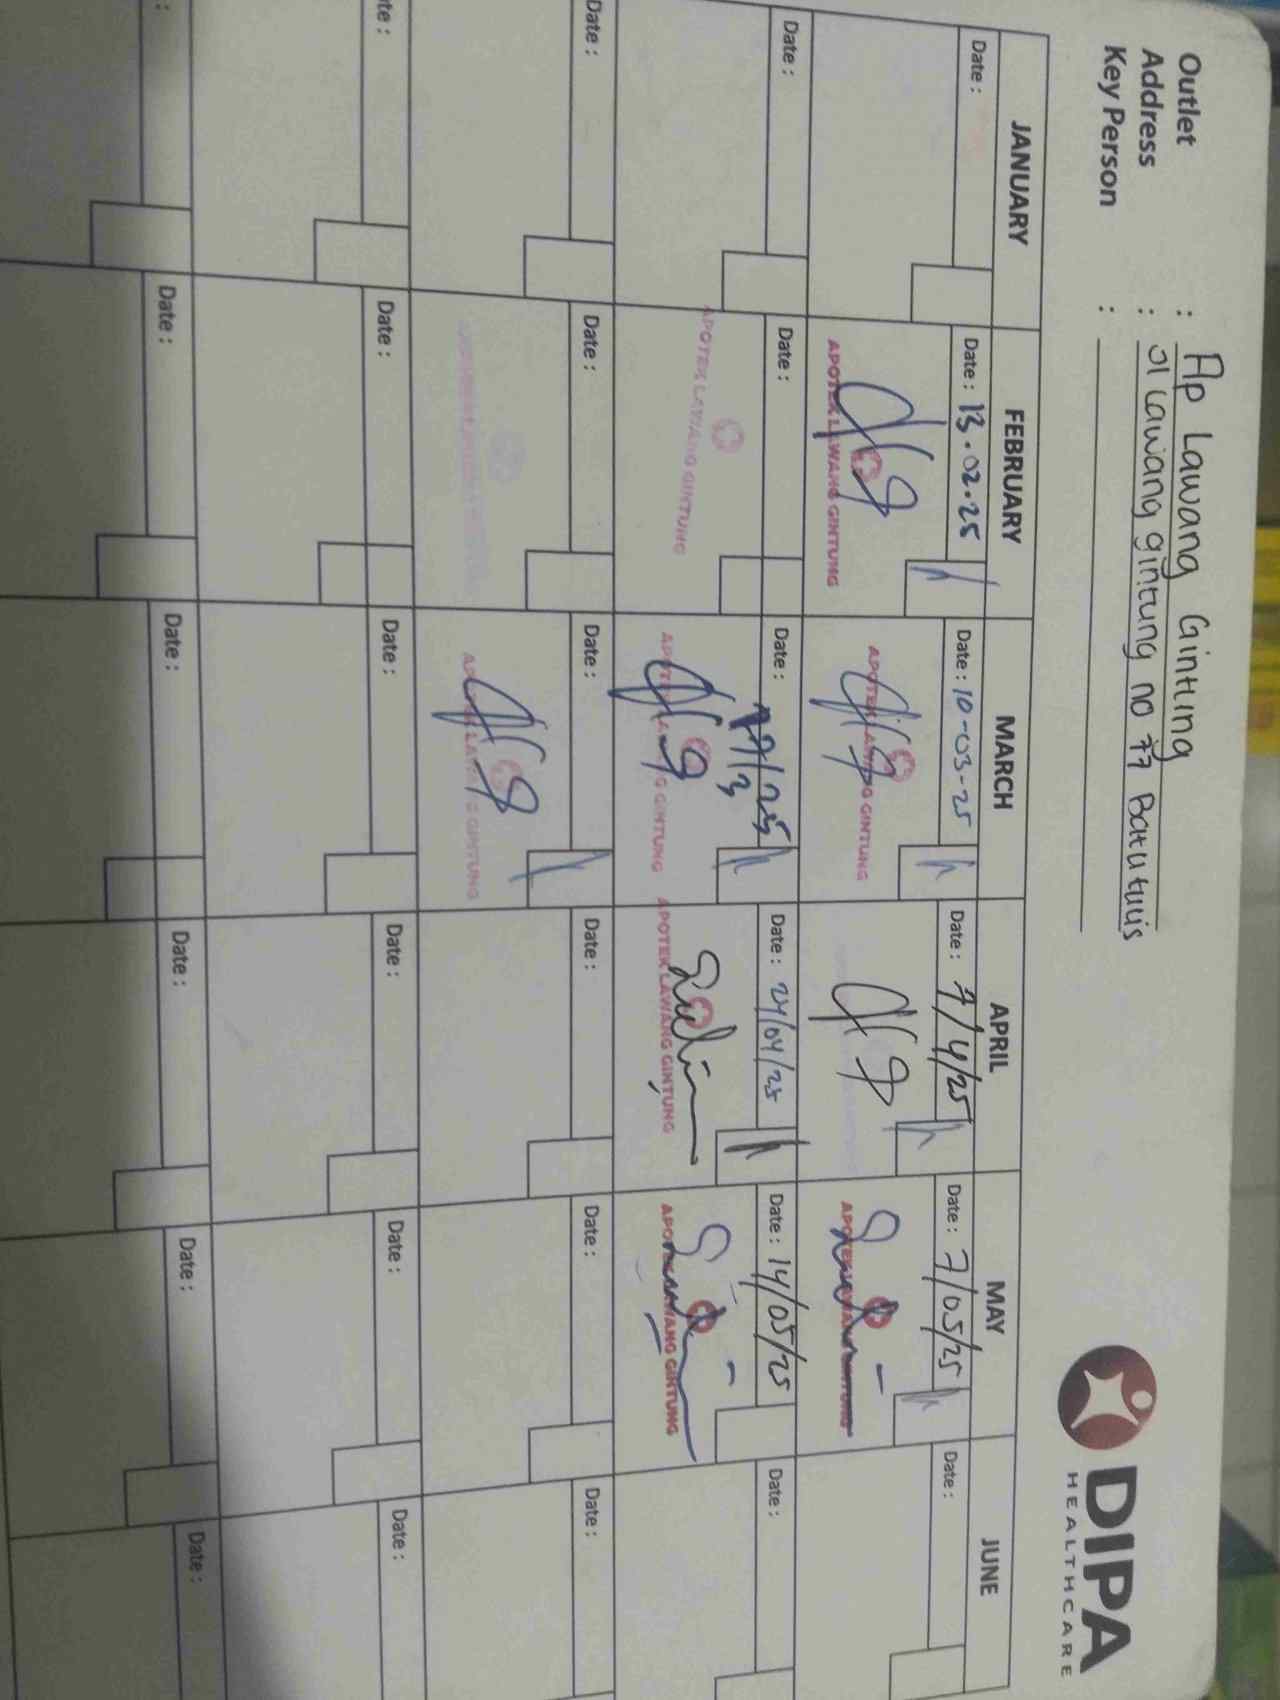 Outlet : Ap Lawang Gintung
Address : Jl Lawang gintung no 77 Batutulis
Key Person :
DIPA
HEALTHCARE
JANUARY FEBRUARY MARCH APRIL MAY JUNE
Date : Date : 13.02.25 Date : 10-03-25 Date : 7/4/25 Date : 7/05/25 Date :
APOTEK LAWANG GINTUNG APOTEK LAWANG GINTUNG APOTEK LAWANG GINTUNG
Date : Date : Date : Date : 24/04/25 Date : 14/05/25 Date :
APOTEK LAWANG GINTUNG APOTEK LAWANG GINTUNG APOTEK LAWANG GINTUNG APOTEK LAWANG GINTUNG
Date : Date : Date : Date : Date : Date :
APOTEK LAWANG GINTUNG
ate : Date : Date : Date : Date : Date :
: Date : Date : Date : Date : Date :